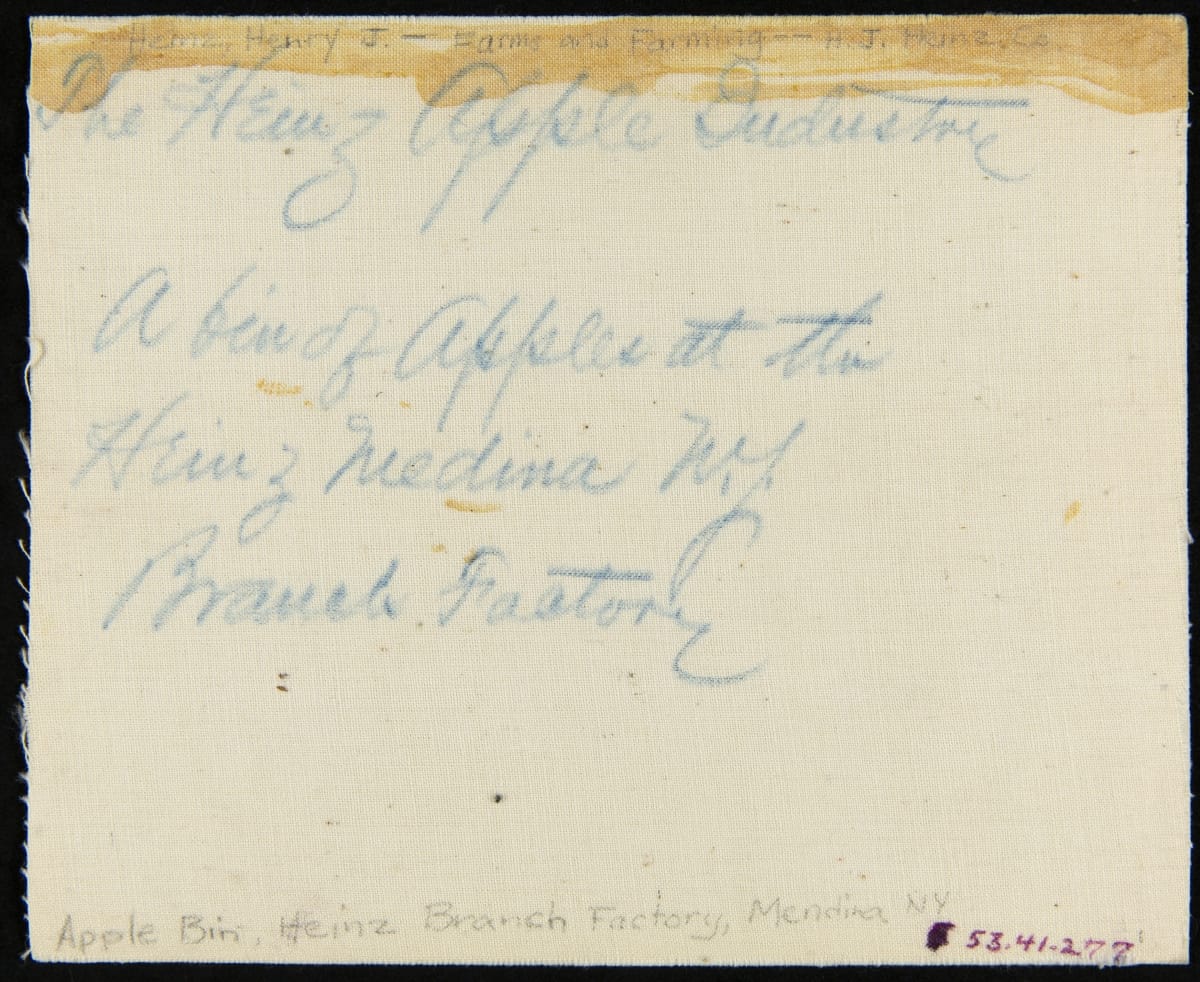 Heinz, Henry J. — Farms and Farming -- H. J. Heinz Co
The Heinz Apple Industry
A bin of Apples at the
Heinz Medina N.Y.
Branch Factory
Apple Bin, Heinz Branch Factory, Mendina NY
53.41.277